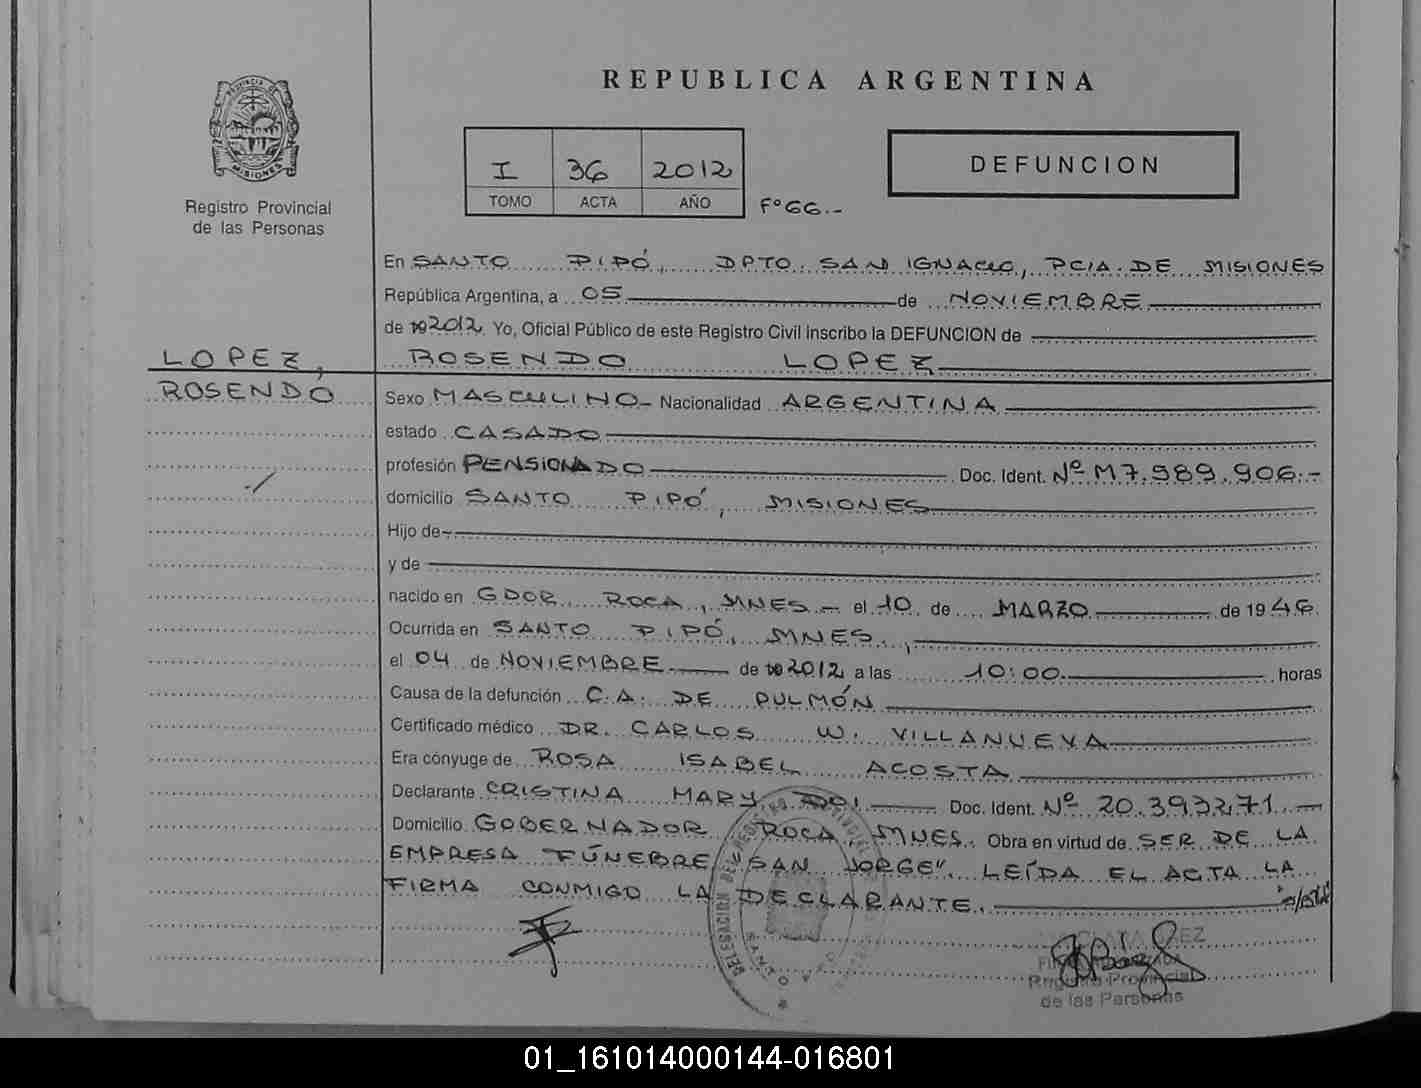 REPUBLICA ARGENTINA
PROVINCIA DE
MISIONES
Registro Provincial
de las Personas
I 36 2012
TOMO ACTA AÑO
Fº 66.-
DEFUNCION
En SANTO PIPÓ, DPTO. SAN IGNACIO, PCIA. DE MISIONES
República Argentina, a 05 de NOVIEMBRE
de 2012. Yo, Oficial Público de este Registro Civil inscribo la DEFUNCION de
LOPEZ,
ROSENDO
ROSENDO LOPEZ
Sexo MASCULINO- Nacionalidad ARGENTINA
estado CASADO
profesión PENSIONADO Doc. Ident. Nº M7.989.906.-
domicilio SANTO PIPÓ, MISIONES
Hijo de-
y de
nacido en GDOR. ROCA, MNES- el 10 de MARZO de 1946.
Ocurrida en SANTO PIPÓ, MNES.,
el 04 de NOVIEMBRE de 2012 a las 10:00 horas
Causa de la defunción C.A. DE PULMÓN
Certificado médico DR. CARLOS W. VILLANUEVA
Era cónyuge de ROSA ISABEL ACOSTA
Declarante CRISTINA MARY Doc. Ident. Nº 20.393.271.-
Domicilio GOBERNADOR ROCA, MNES. Obra en virtud de SER DE LA
EMPRESA FÚNEBRE "SAN JORGE". LEÍDA EL ACTA LA
FIRMA CONMIGO LA DECLARANTE.
DELEGACION DEL REGISTRO PROVINCIAL
SANTO
Registro Provincial
de las Personas
01_161014000144-016801